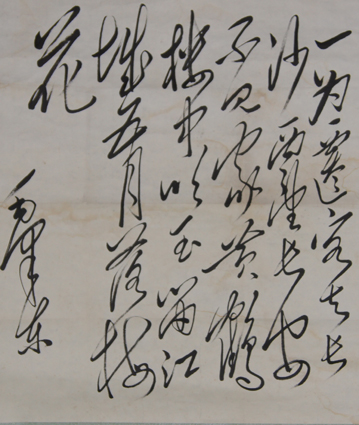 一为遷客去长
沙西望长安
不见家黄鶴
楼中吹玉笛江
城五月落梅
花
毛泽东